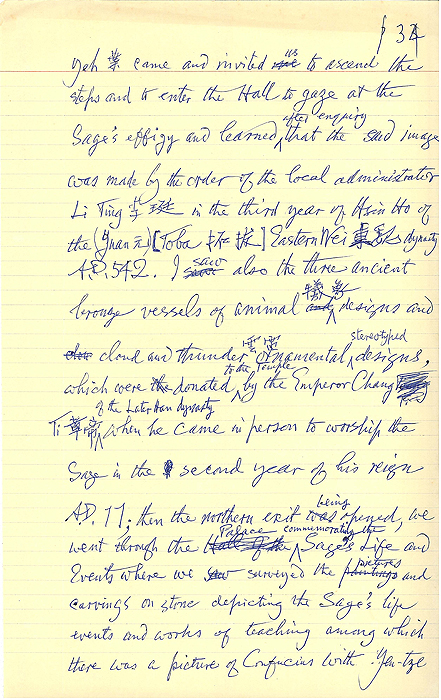 p 34
yeh 業 came and invited us to ascend the
steps and to enter the Hall to gaze at the
Sage's effigy and learned, after enquiry that the said image
was made by the order of the local administrator
Li Ting 李珽 in the third year of Hsin Ho of
the (Yuan 元) [Toba 拓拔] Eastern Wei dynasty
A.D. 542. I saw also the three ancient
bronze vessels of animal designs and
cloud and thunder 雲雷 ornamental, stereotyped designs,
which were donated to the Temple by the Emperor Chang
Ti 章帝 of the Later Han dynasty when he came in person to worship the
Sage in the second year of his reign
A.D. 77; then the northern exit being opened, we
went through the Palace commemorating the Sage's Life and
Events where we surveyed the pictures and
carvings on stone depicting the Sage's life
events and works of teaching among which
there was a picture of Confucius with Yen-tze